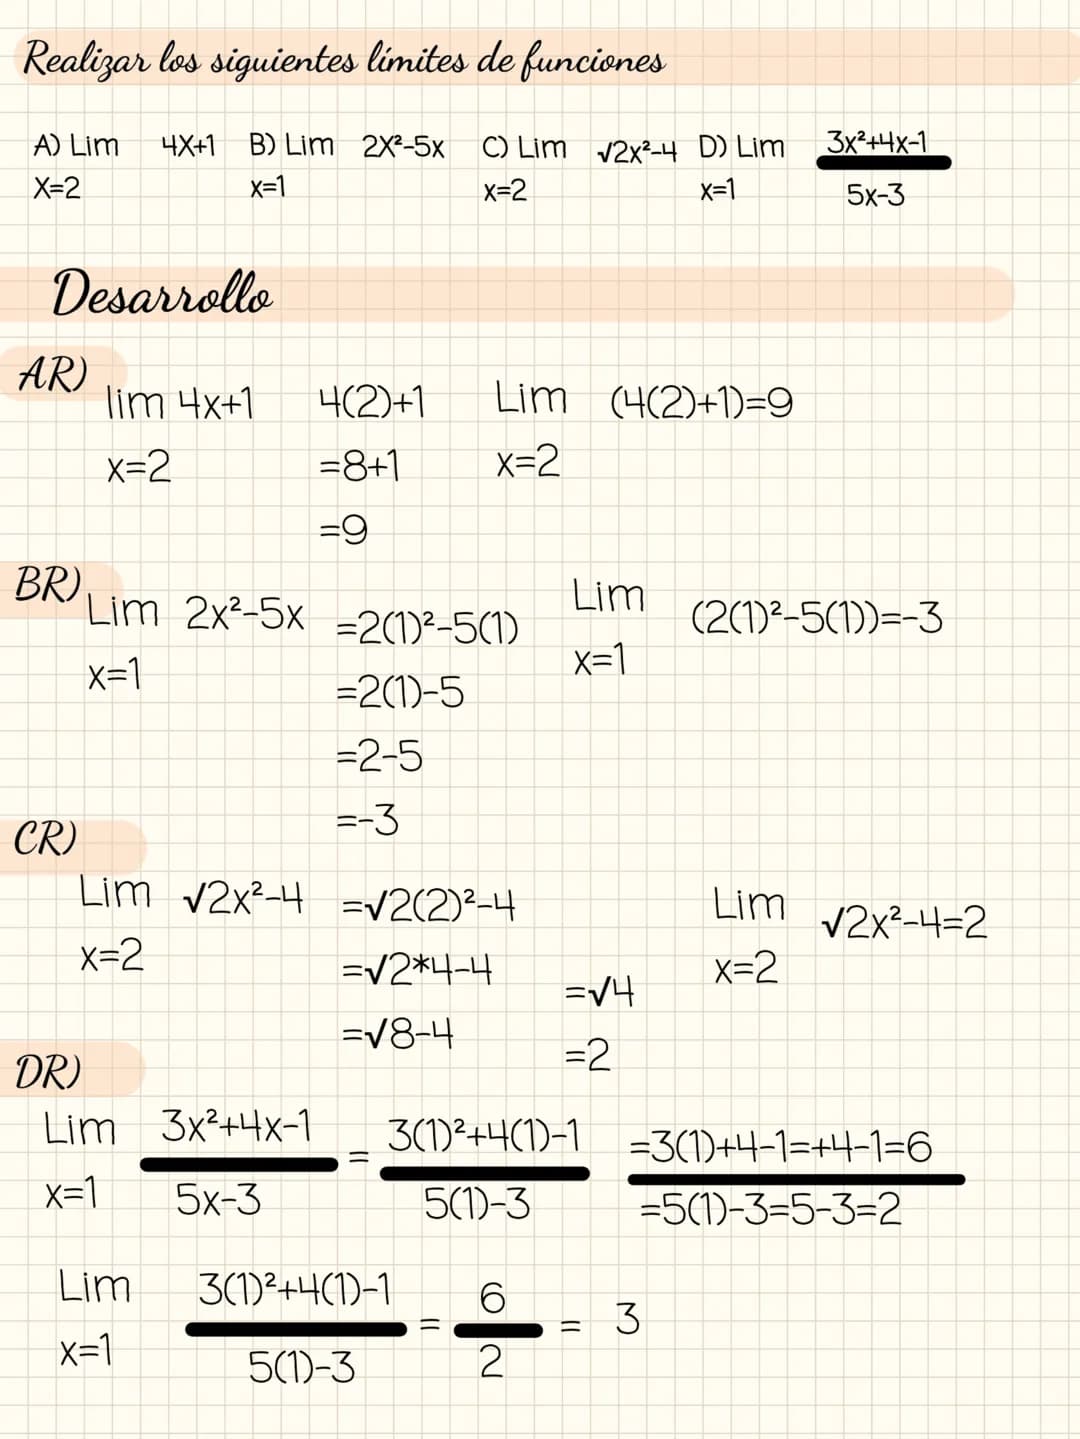 Realizar los siguientes límites de funciones
A) Lim 4X+1 B) Lim 2X²-5x C) Lim √2x²-4 D) Lim 3x²+4x-1
X=2 x=1 x=2 x=1 5x-3
Desarrollo
AR)
lim 4x+1 4(2)+1 Lim (4(2)+1)=9
x=2 =8+1 x=2
=9
BR)
Lim 2x²-5x =2(1)²-5(1) Lim (2(1)²-5(1))=-3
x=1 =2(1)-5 x=1
=2-5
=-3
CR)
Lim √2x²-4 =√2(2)²-4 Lim √2x²-4=2
x=2 =√2*4-4 =√4 x=2
=√8-4 =2
DR)
Lim 3x²+4x-1 = 3(1)²+4(1)-1 =3(1)+4-1=+4-1=6
x=1 5x-3 5(1)-3 =5(1)-3=5-3=2
Lim 3(1)²+4(1)-1 = 6 = 3
x=1 5(1)-3 2